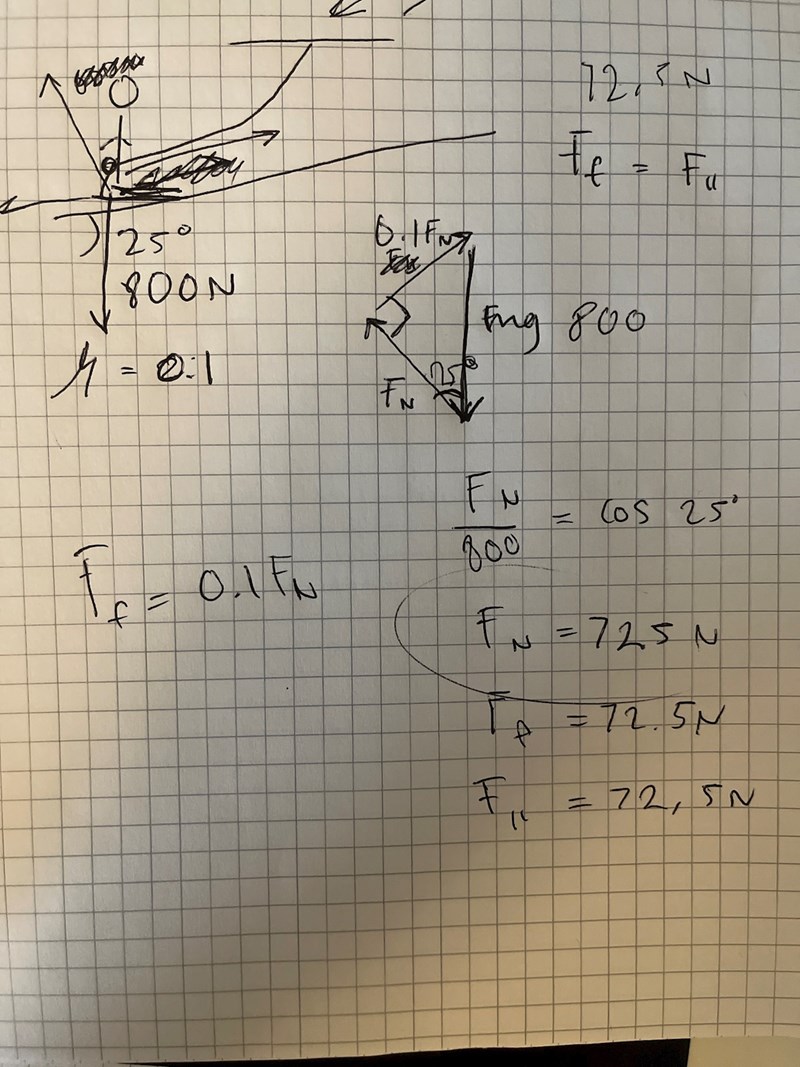 72,5 N
F_f = F_∥
25°
800N
μ = 0.1
0.1F_N
Fmg 800
25°
F_N
F_N / 800 = cos 25°
F_f = 0.1F_N
F_N = 725 N
F_f = 72.5N
F_∥ = 72,5N